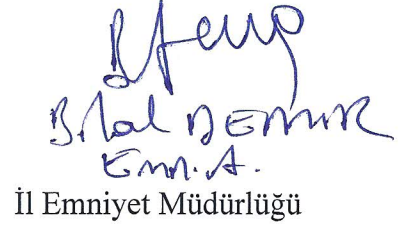 Bilal DEMİR
Em.A.
İl Emniyet Müdürlüğü